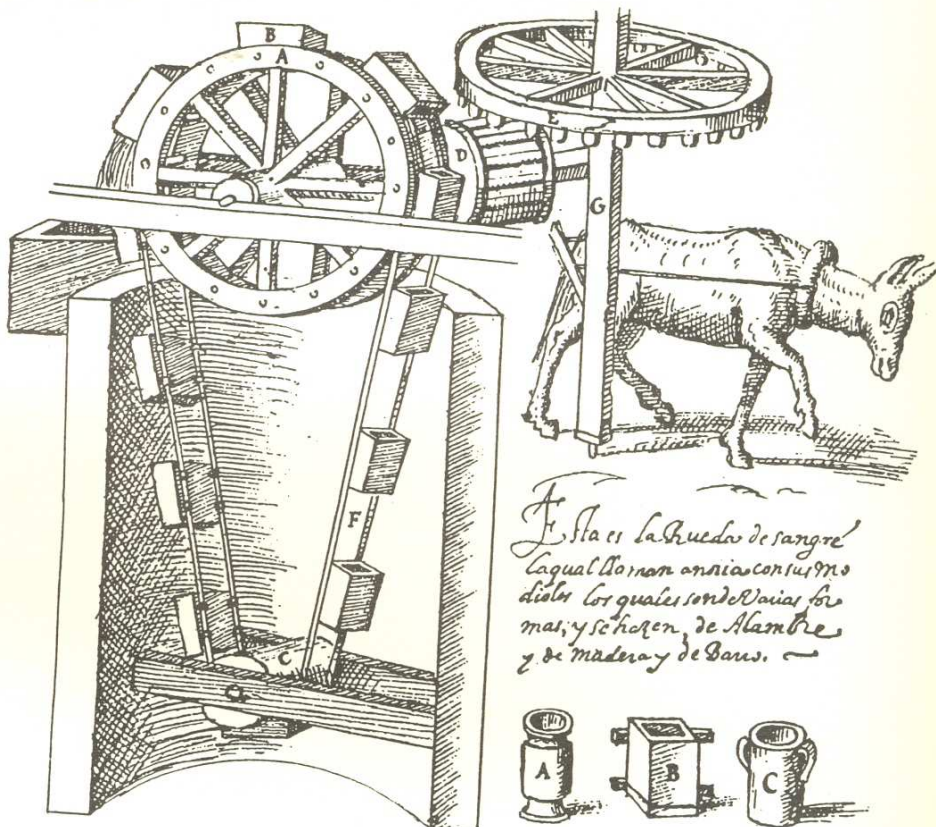 B
A
D
E
G
F
C
G
A
Esta es la Rueda de sangre
la qual llaman annia con sus mo
dioles los quales son de Varias for
mas, y se hazen, de Alambre
y de madera y de Barro.
A
B
C